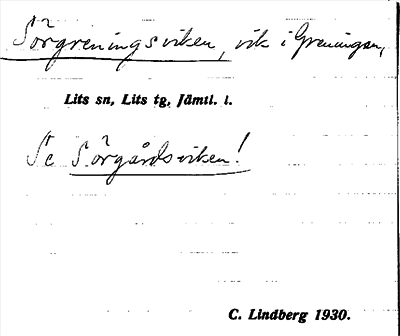 Sörgreningsviken, vik i Greningen,
Lits sn, Lits tg, Jämtl. l.
Se Sörgårdsviken!
C. Lindberg 1930.